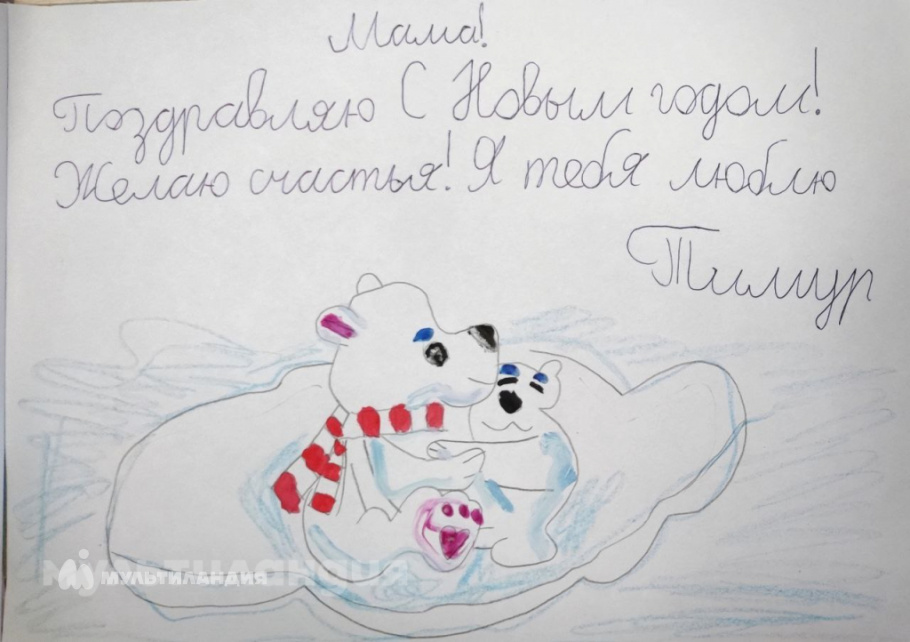 Мама!
Поздравляю С Новым годом!
Желаю счастья! Я тебя люблю
Тимур
Мультиландия
МУЛЬТИЛАНДИЯ